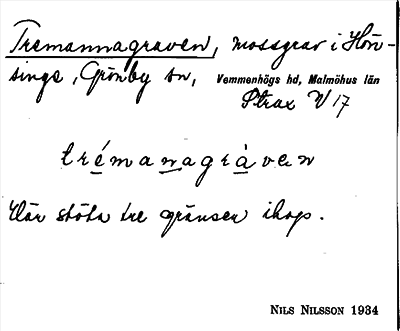 Tremannagraven, mossgrav i Hön-
singe, Grönby sn, Vemmenhögs hd, Malmöhus län
Ptrax V 17
trémanagràven
Där stöta tre gränser ihop.
NILS NILSSON 1934